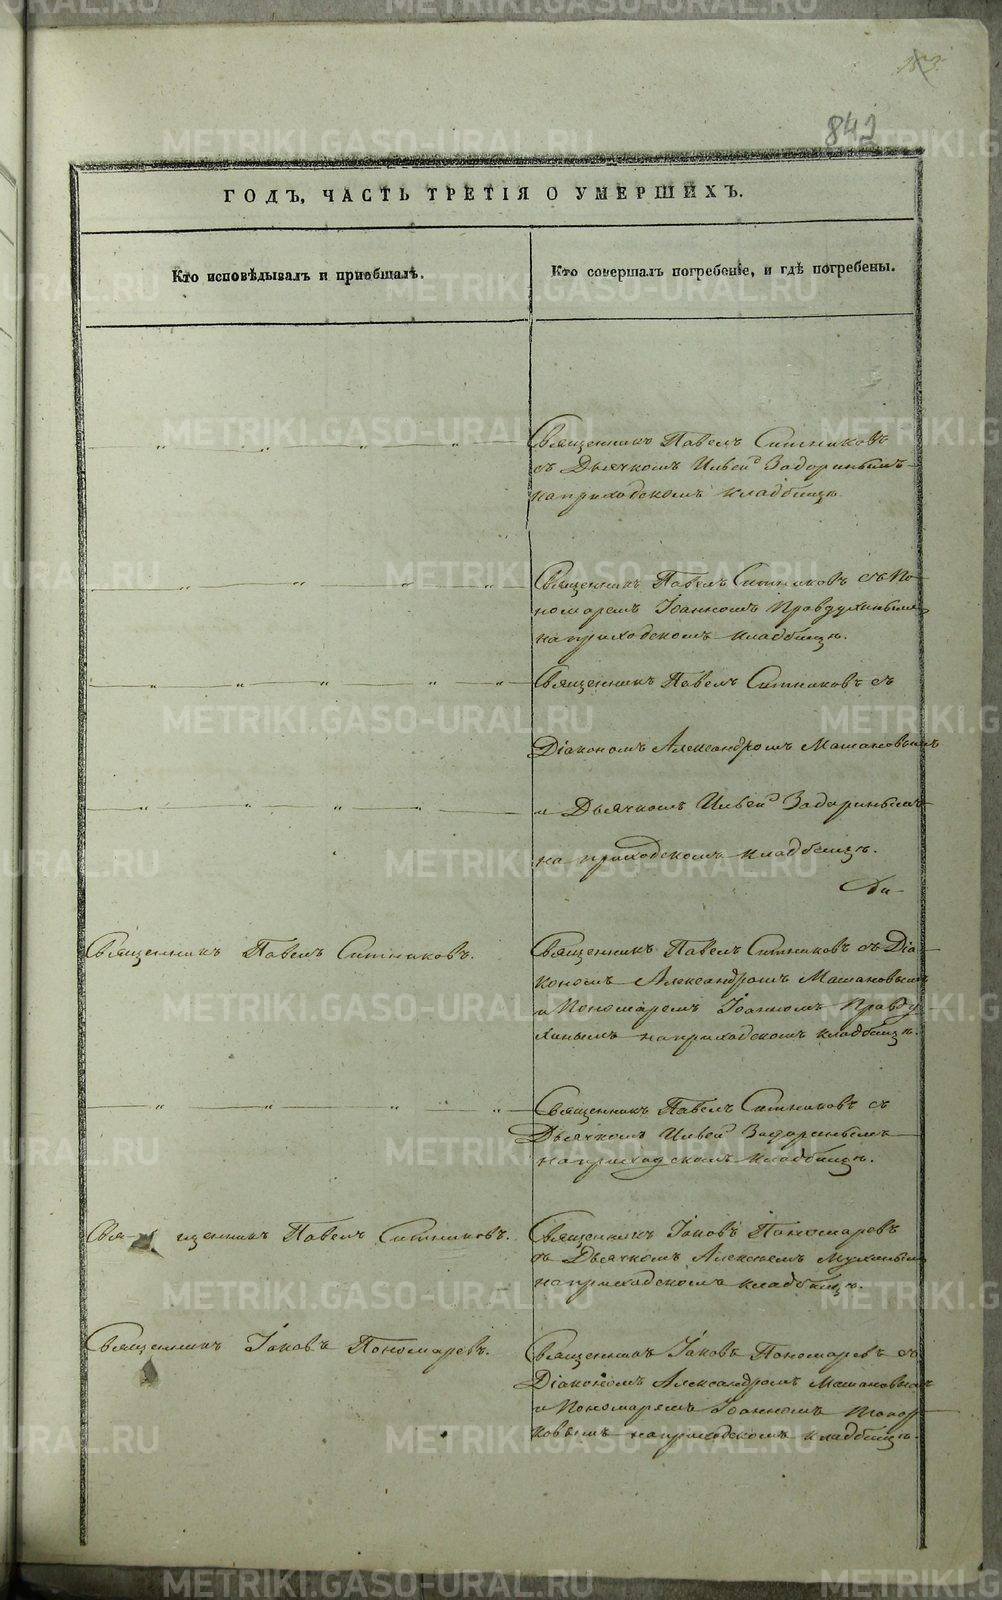 183.
842
ГОДЪ, ЧАСТЬ ТРЕТІЯ О УМЕРШИХЪ.
Кто исповѣдывалъ и приобщалъ.
Кто совершалъ погребеніе, и гдѣ погребены.
Священникъ Павелъ Ситниковъ
съ Дьячкомъ Ильей Задоринымъ
на приходскомъ кладбищѣ.
Священникъ Павелъ Ситниковъ съ По-
номаремъ Іоанномъ Правдухинымъ
на приходскомъ кладбищѣ.
Священникъ Павелъ Ситниковъ съ
Діакономъ Александромъ Машановымъ
и Дьячкомъ Ильей Задоринымъ
на приходскомъ кладбищѣ.
Священникъ Павелъ Ситниковъ.
Священникъ Павелъ Ситниковъ съ Діа-
кономъ Александромъ Машановымъ
и Пономаремъ Іоанномъ Правду-
хинымъ на приходскомъ кладбищѣ.
Священникъ Павелъ Ситниковъ съ
Дьячкомъ Ильей Задоринымъ
на приходскомъ кладбищѣ.
Свя- щенникъ Павелъ Ситниковъ.
Священникъ Іаковъ Пономаревъ
съ Дьячкомъ Алексѣемъ Мухинымъ
на приходскомъ кладбищѣ.
Священникъ Іаковъ Пономаревъ.
Священникъ Іаковъ Пономаревъ съ
Діакономъ Александромъ Машановымъ
и Пономаремъ Іоанномъ
на приходскомъ кладбищѣ.
METRIKI.GASO-URAL.RU